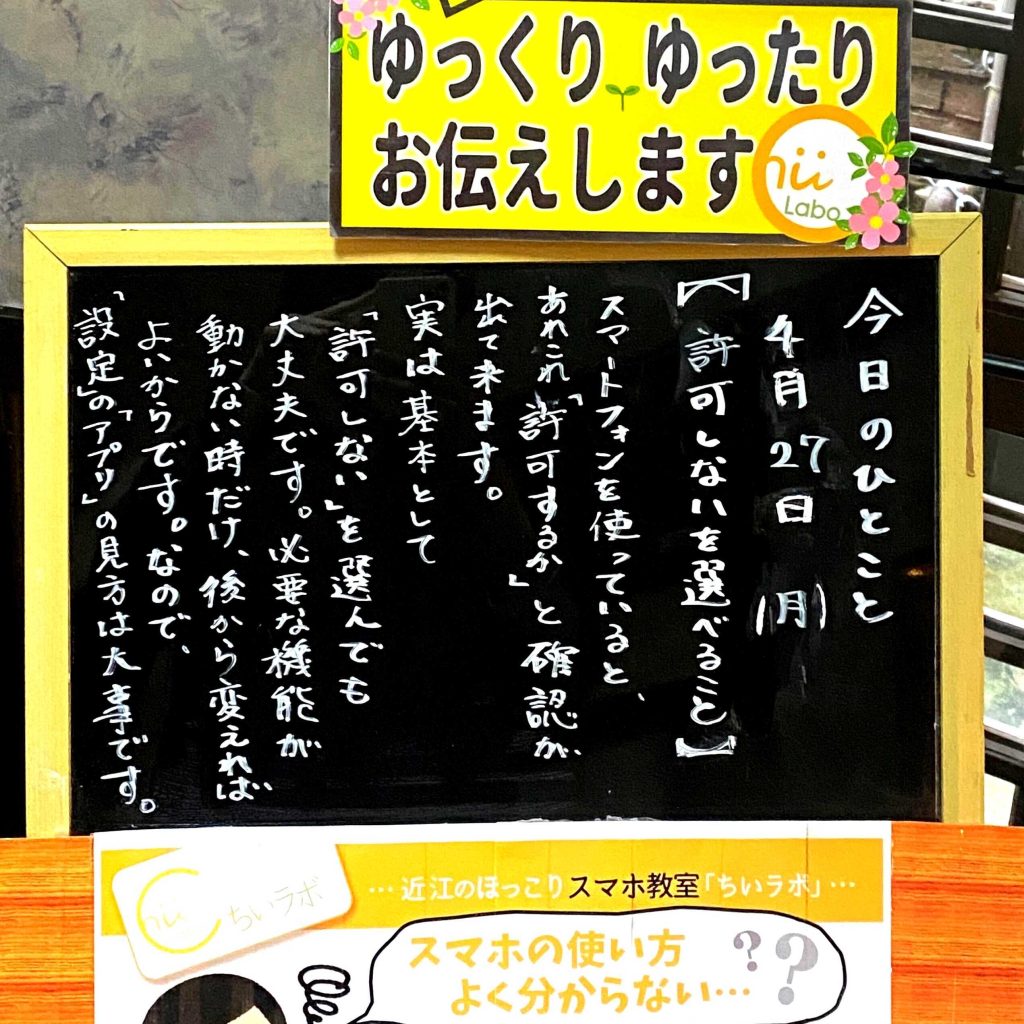 ゆっくり ゆったり
お伝えします
hii
Labo
今日のひとこと
4月27日(月)
【許可しないを選べること】
スマートフォンを使っていると、
あれこれ「許可するか」と確認が
出て来ます。
実は基本として
「許可しない」を選んでも
大丈夫です。必要な機能が
動かない時だけ、後から変えれば
よいからです。なので、
「設定」のアプリ」の見方は大事です。
hii ちいラボ
…近江のほっこりスマホ教室「ちいラボ」…
スマホの使い方
よく分からない…??